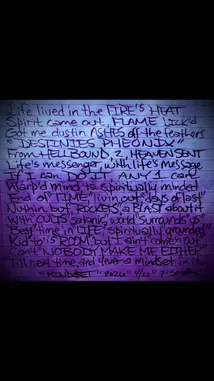 Life lived in the FIRE'S HEAT
Spirit came out, FLAME Lick'd
Got me dustin ASHES off the feathers
"DESTINIES PHEONIX"
From HELLBOUND, 2, HEAVEN SENT
Life's messenger, with life's message
If I can DO IT ANY 1 can
Warp'd mind to spiritually minded
End of TIME, "livin out days of last"
Nuthin but ROCKETS, a BLAST about it
With CULTS satanic, world surrounds us
Best time in LIFE, spiritually grounded
Kid to is ROOM, but I ain't come out
NOBODY MAKE ME EITHER
Till next time, and 4ever a mindset in it